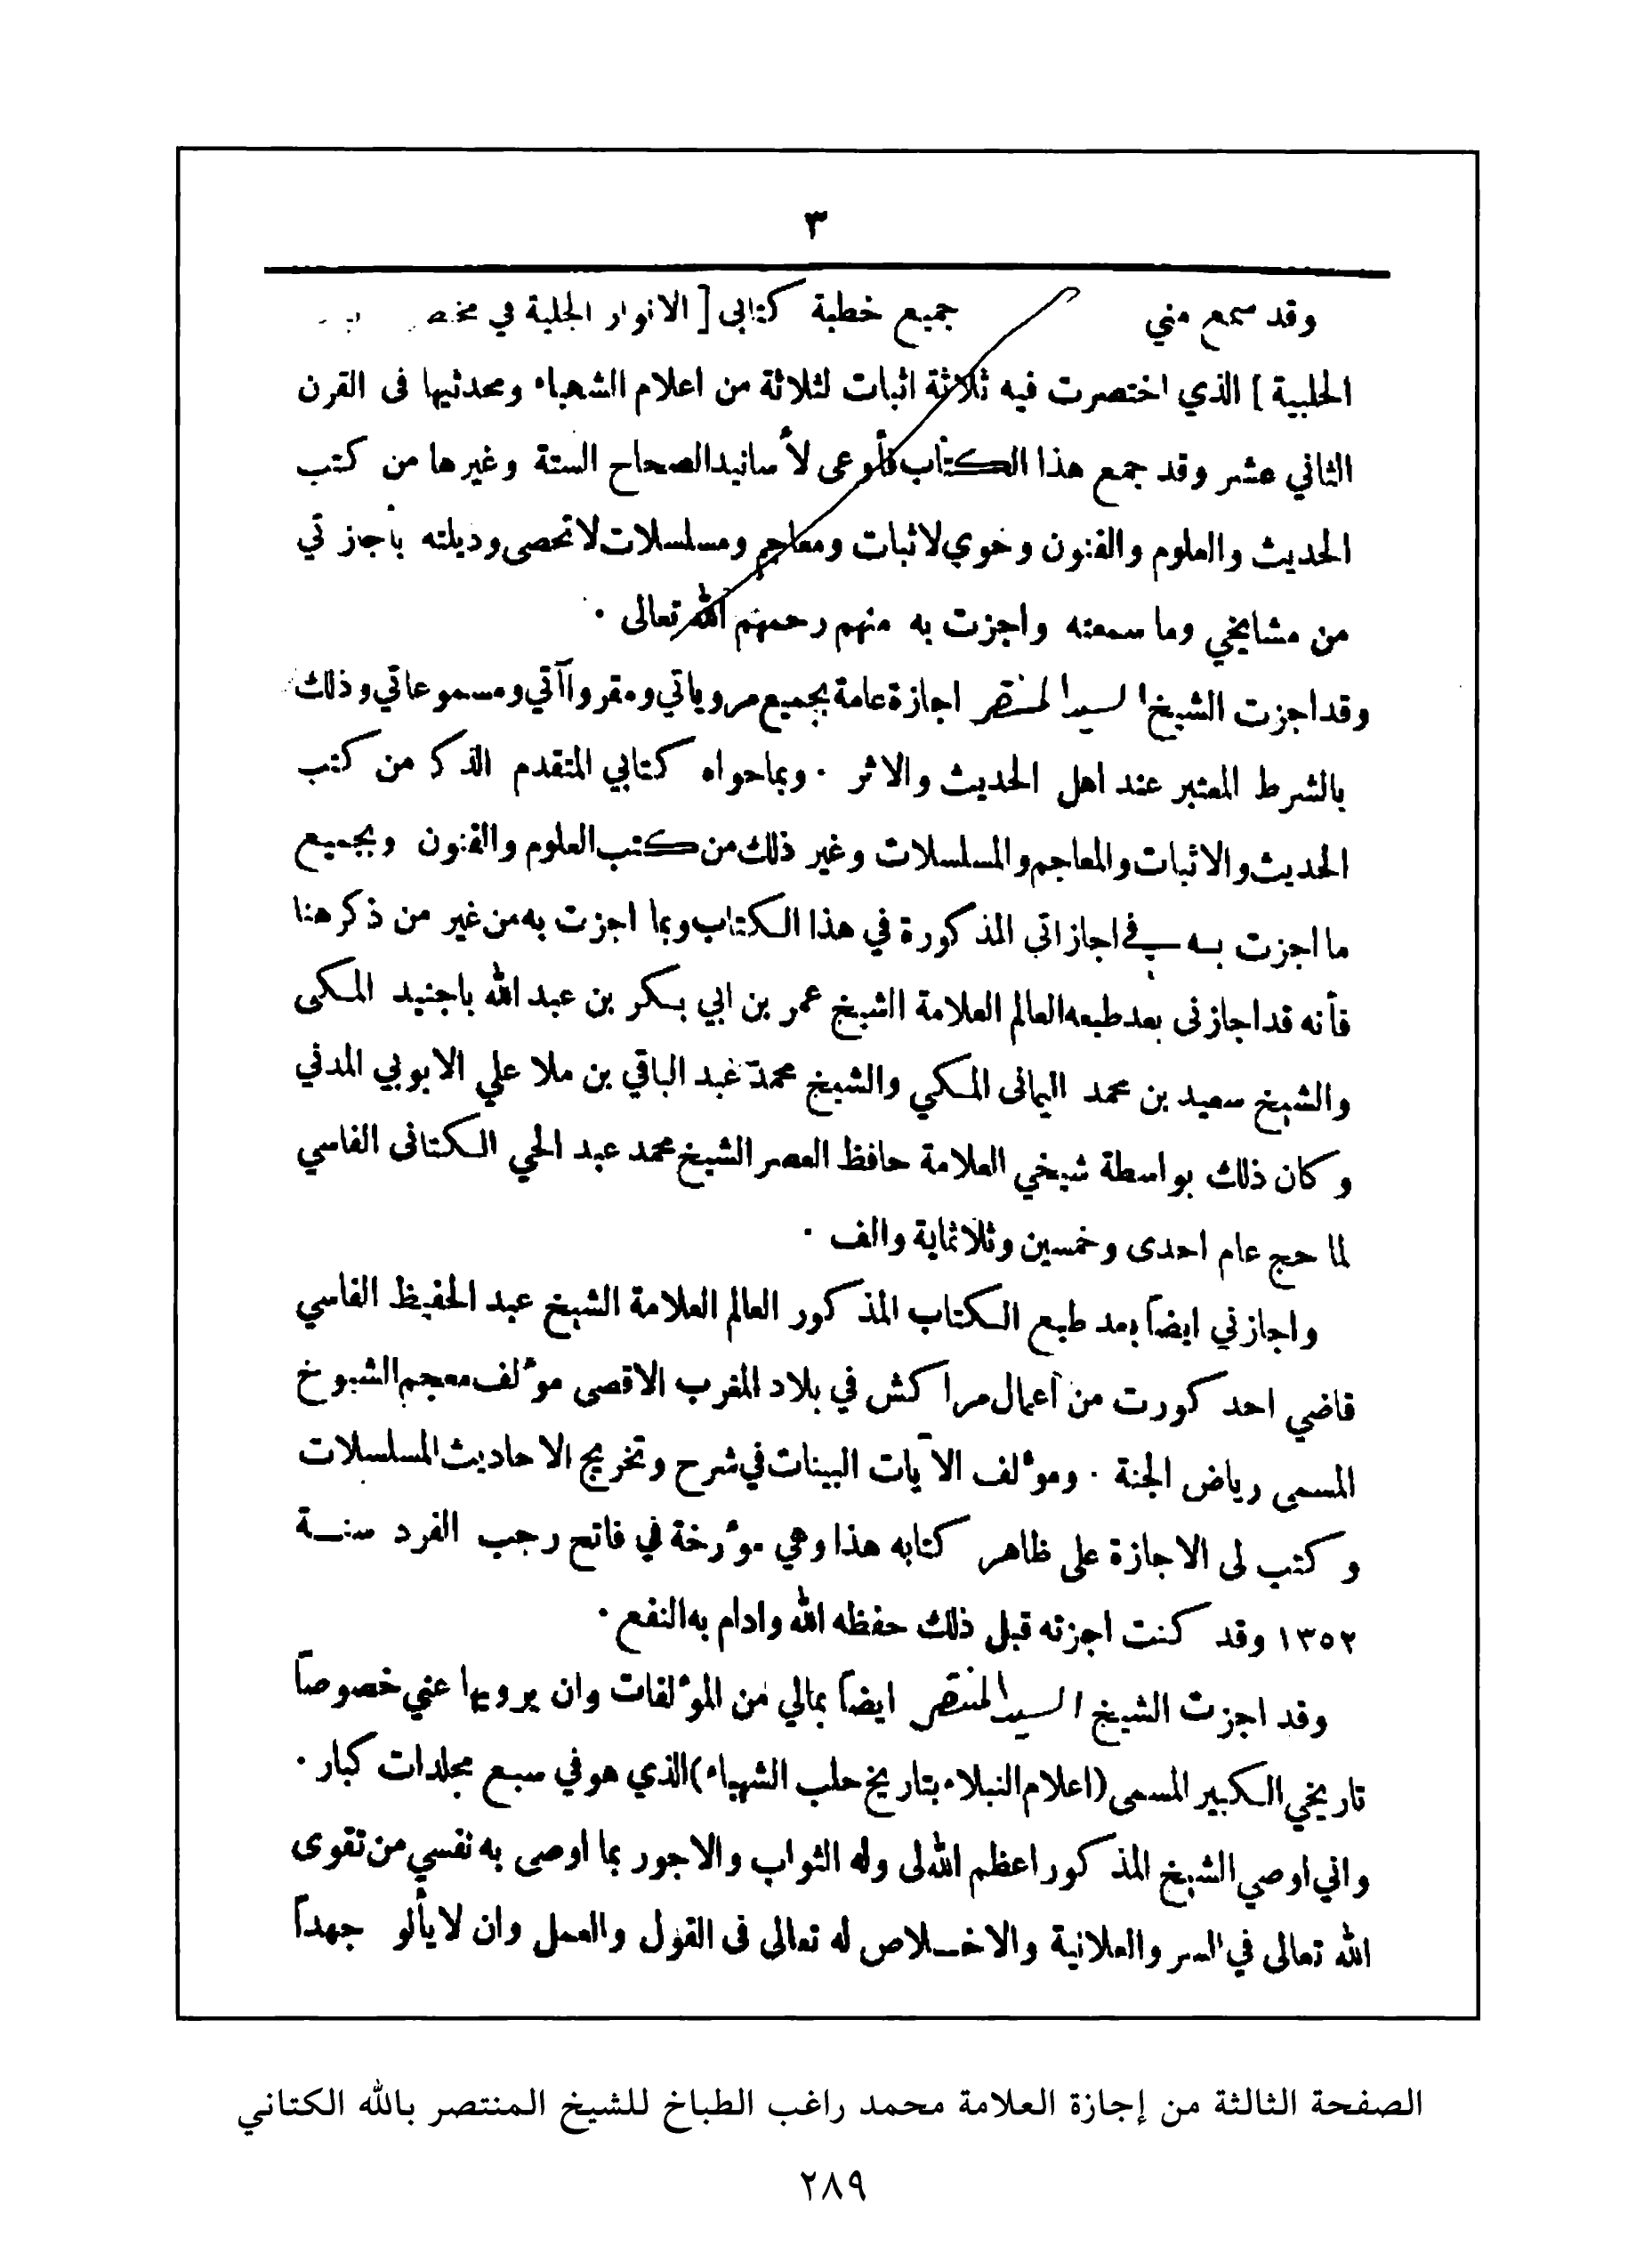 ٣
وقد سمع مني جميع خطبة كتابي [ الانوار الجلية في
الحلبية ] الذي اختصرت فيه ثلاثة اثبات لثلاثة من اعلام الشهباء ومحدثيها فى القرن
الثاني عشر وقد جمع هذا الكتاب فأوعى لأسانيد الصحاح الستة وغيرها من كتب
الحديث والعلوم والفنون وحوي لاثبات ومعاجم ومسلسلات لا تحصى وذيلته بأجازتي
من مشايخي وما سمعته واجزت به منهم رحمهم الله تعالى .
وقد اجزت الشيخ السيد المنتصر اجازة عامة بجميع مروياتي ومقرواآتي ومسموعاتي وذلك
بالشرط المعتبر عند اهل الحديث والاثر . وبما حواه كتابي المتقدم الذكر من كتب
الحديث والاثبات والمعاجم والمسلسلات وغير ذلك من كتب العلوم والفنون وبجميع
ما اجزت به في اجازاتي المذكورة في هذا الكتاب وبما اجزت به من غير من ذكر هنا
فأنه قد اجازنى بعد طبعه العالم العلامة الشيخ عمر بن ابي بكر بن عبد الله باجنيد المكى
والشيخ سعيد بن محمد اليمانى المكي والشيخ محمد عبد الباقي بن ملا علي الايوبي المدني
وكان ذلك بواسطة شيخي العلامة حافظ العصر الشيخ محمد عبد الحي الكتانى الفاسي
لما حج عام احدى وخمسين وثلاثماية والف .
واجازني ايضاً بعد طبع الكتاب المذكور العالم العلامة الشيخ عبد الحفيظ الفاسي
قاضي احد كورت من أعمال مراكش في بلاد المغرب الاقصى مؤلف معجم الشيوخ
المسمى رياض الجنة . ومؤلف الآيات البينات في شرح وتخريج الاحاديث المسلسلات
وكتب لى الاجازة على ظاهر كتابه هذا وهي مؤرخة في فاتح رجب الفرد سنة
١٣٥٢ وقد كنت اجزته قبل ذلك حفظه الله وادام به النفع .
وقد اجزت الشيخ السيد المنتصر ايضاً بمالي من المؤلفات وان يرويها عني خصوصاً
تاريخي الكبير المسمى (اعلام النبلاء بتاريخ حلب الشهباء) الذي هو في سبع مجلدات كبار .
واني اوصي الشيخ المذكور اعظم الله لى وله الثواب والاجور بما اوصى به نفسي من تقوى
الله تعالى في السر والعلانية والاخلاص له تعالى فى القول والعمل وان لا يألو جهداً
الصفحة الثالثة من إجازة العلامة محمد راغب الطباخ للشيخ المنتصر بالله الكتاني
٢٨٩